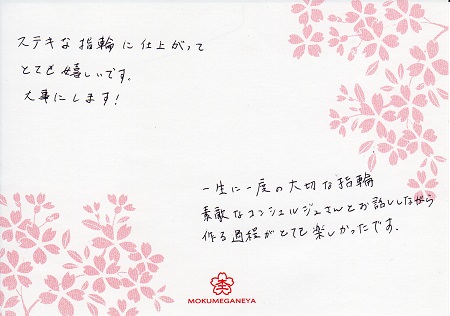 ステキな指輪に仕上がって
とても嬉しいです。
大事にします!
一生に一度の大切な指輪
素敵なコンシェルジュさんとお話ししながら
作る過程がとても楽しかったです。
MOKUMEGANEYA